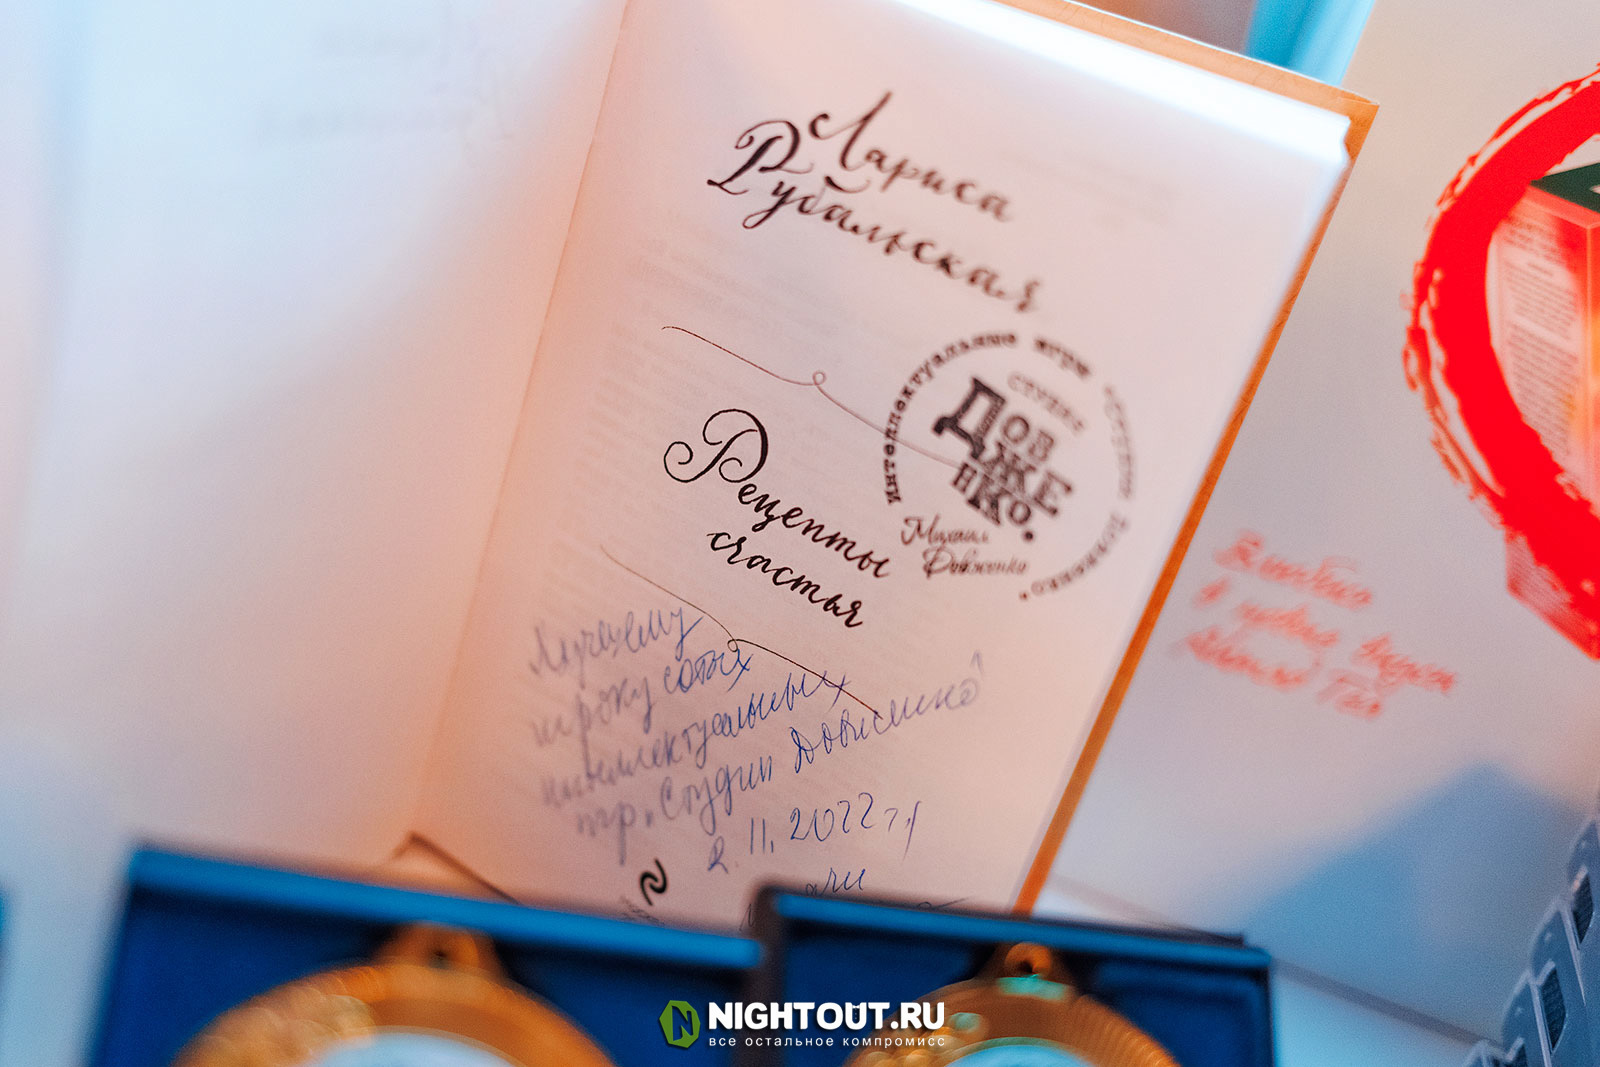 Лариса
Рубальская
Интеллектуальные игры «Студии Довженко».
СТУДИЯ
ДОВ
ЖЕ
НКО.
Михаил
Довженко
Рецепты
счастья
Лучшему
игроку сотых
интеллектуальных
игр „Студии Довженко"
2.11.2022 г.
Влюблено
в
NIGHTOUT.RU
все остальное компромисс